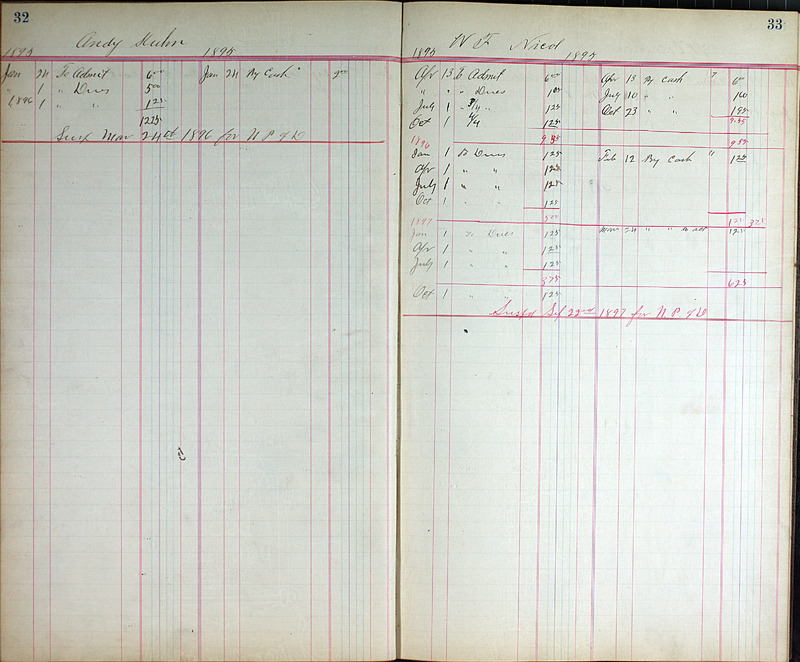 32
Andy Huhn
1895 1895
Jan 24 To Admit 6 00 Jan 24 By Cash 2 00
" 1 " Dues 5 00
1896 1 " " 1 25
12 25
Susp Mar 24th 1896 for N P of D
33
W F Nicol
1895 1895
Apr 13 To Admit 6 00 Apr 13 By Cash 7 6 00
" " " Dues 1 05 July 10 " " 1 60
July 1 " 3/4 " 1 25 Oct 23 " " 1 95
Oct 1 4/4 1 25 9 55
1896 9 55 9 55
Jan 1 To Dues 1 25 Feb 12 By Cash " 1 25
Apr 1 " " 1 25
July 1 " " 1 25
Oct 1 " " 1 25
1897 5 00 1 25
Jan 1 To Dues 1 25 Mar 24 " " 1 25
Apr 1 " " 1 25
July 1 " " 1 25
8 75 6 25
Oct 1 " " 1 25
Susp'd Sep 22nd 1897 for N. P. of D